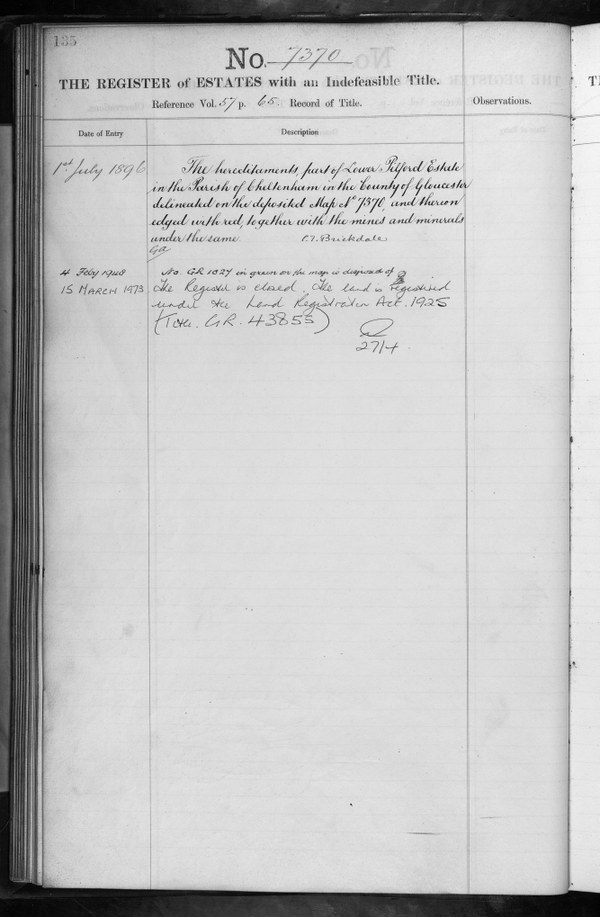 135
No. 7370
THE REGISTER of ESTATES with an Indefeasible Title.
Reference Vol. 57 p. 65. Record of Title.
Observations.
Date of Entry
Description
1st July 1896
The hereditaments, part of Lower Pilford Estate
in the Parish of Cheltenham in the County of Gloucester
delineated on the deposited Map No 7370, and thereon
edged with red, together with the mines and minerals
under the same. C.F. Brickdale
4 Feby 1948
No. GR 1027 in green on the map is disposed of
15 MARCH 1973
The Register is closed. The land is registered
under the Land Registration Act. 1925
(Title. GR. 43855)
27/4